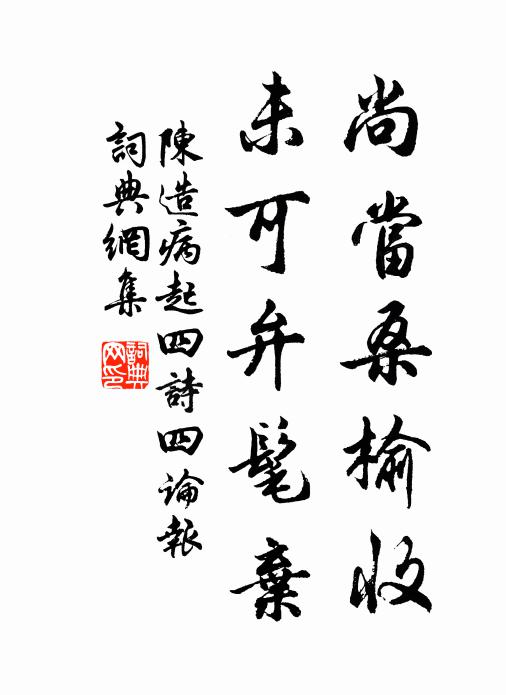 尚當桑榆收
未可弁髦棄
陳造病起四詩四論報
詞典網集
詞典網印